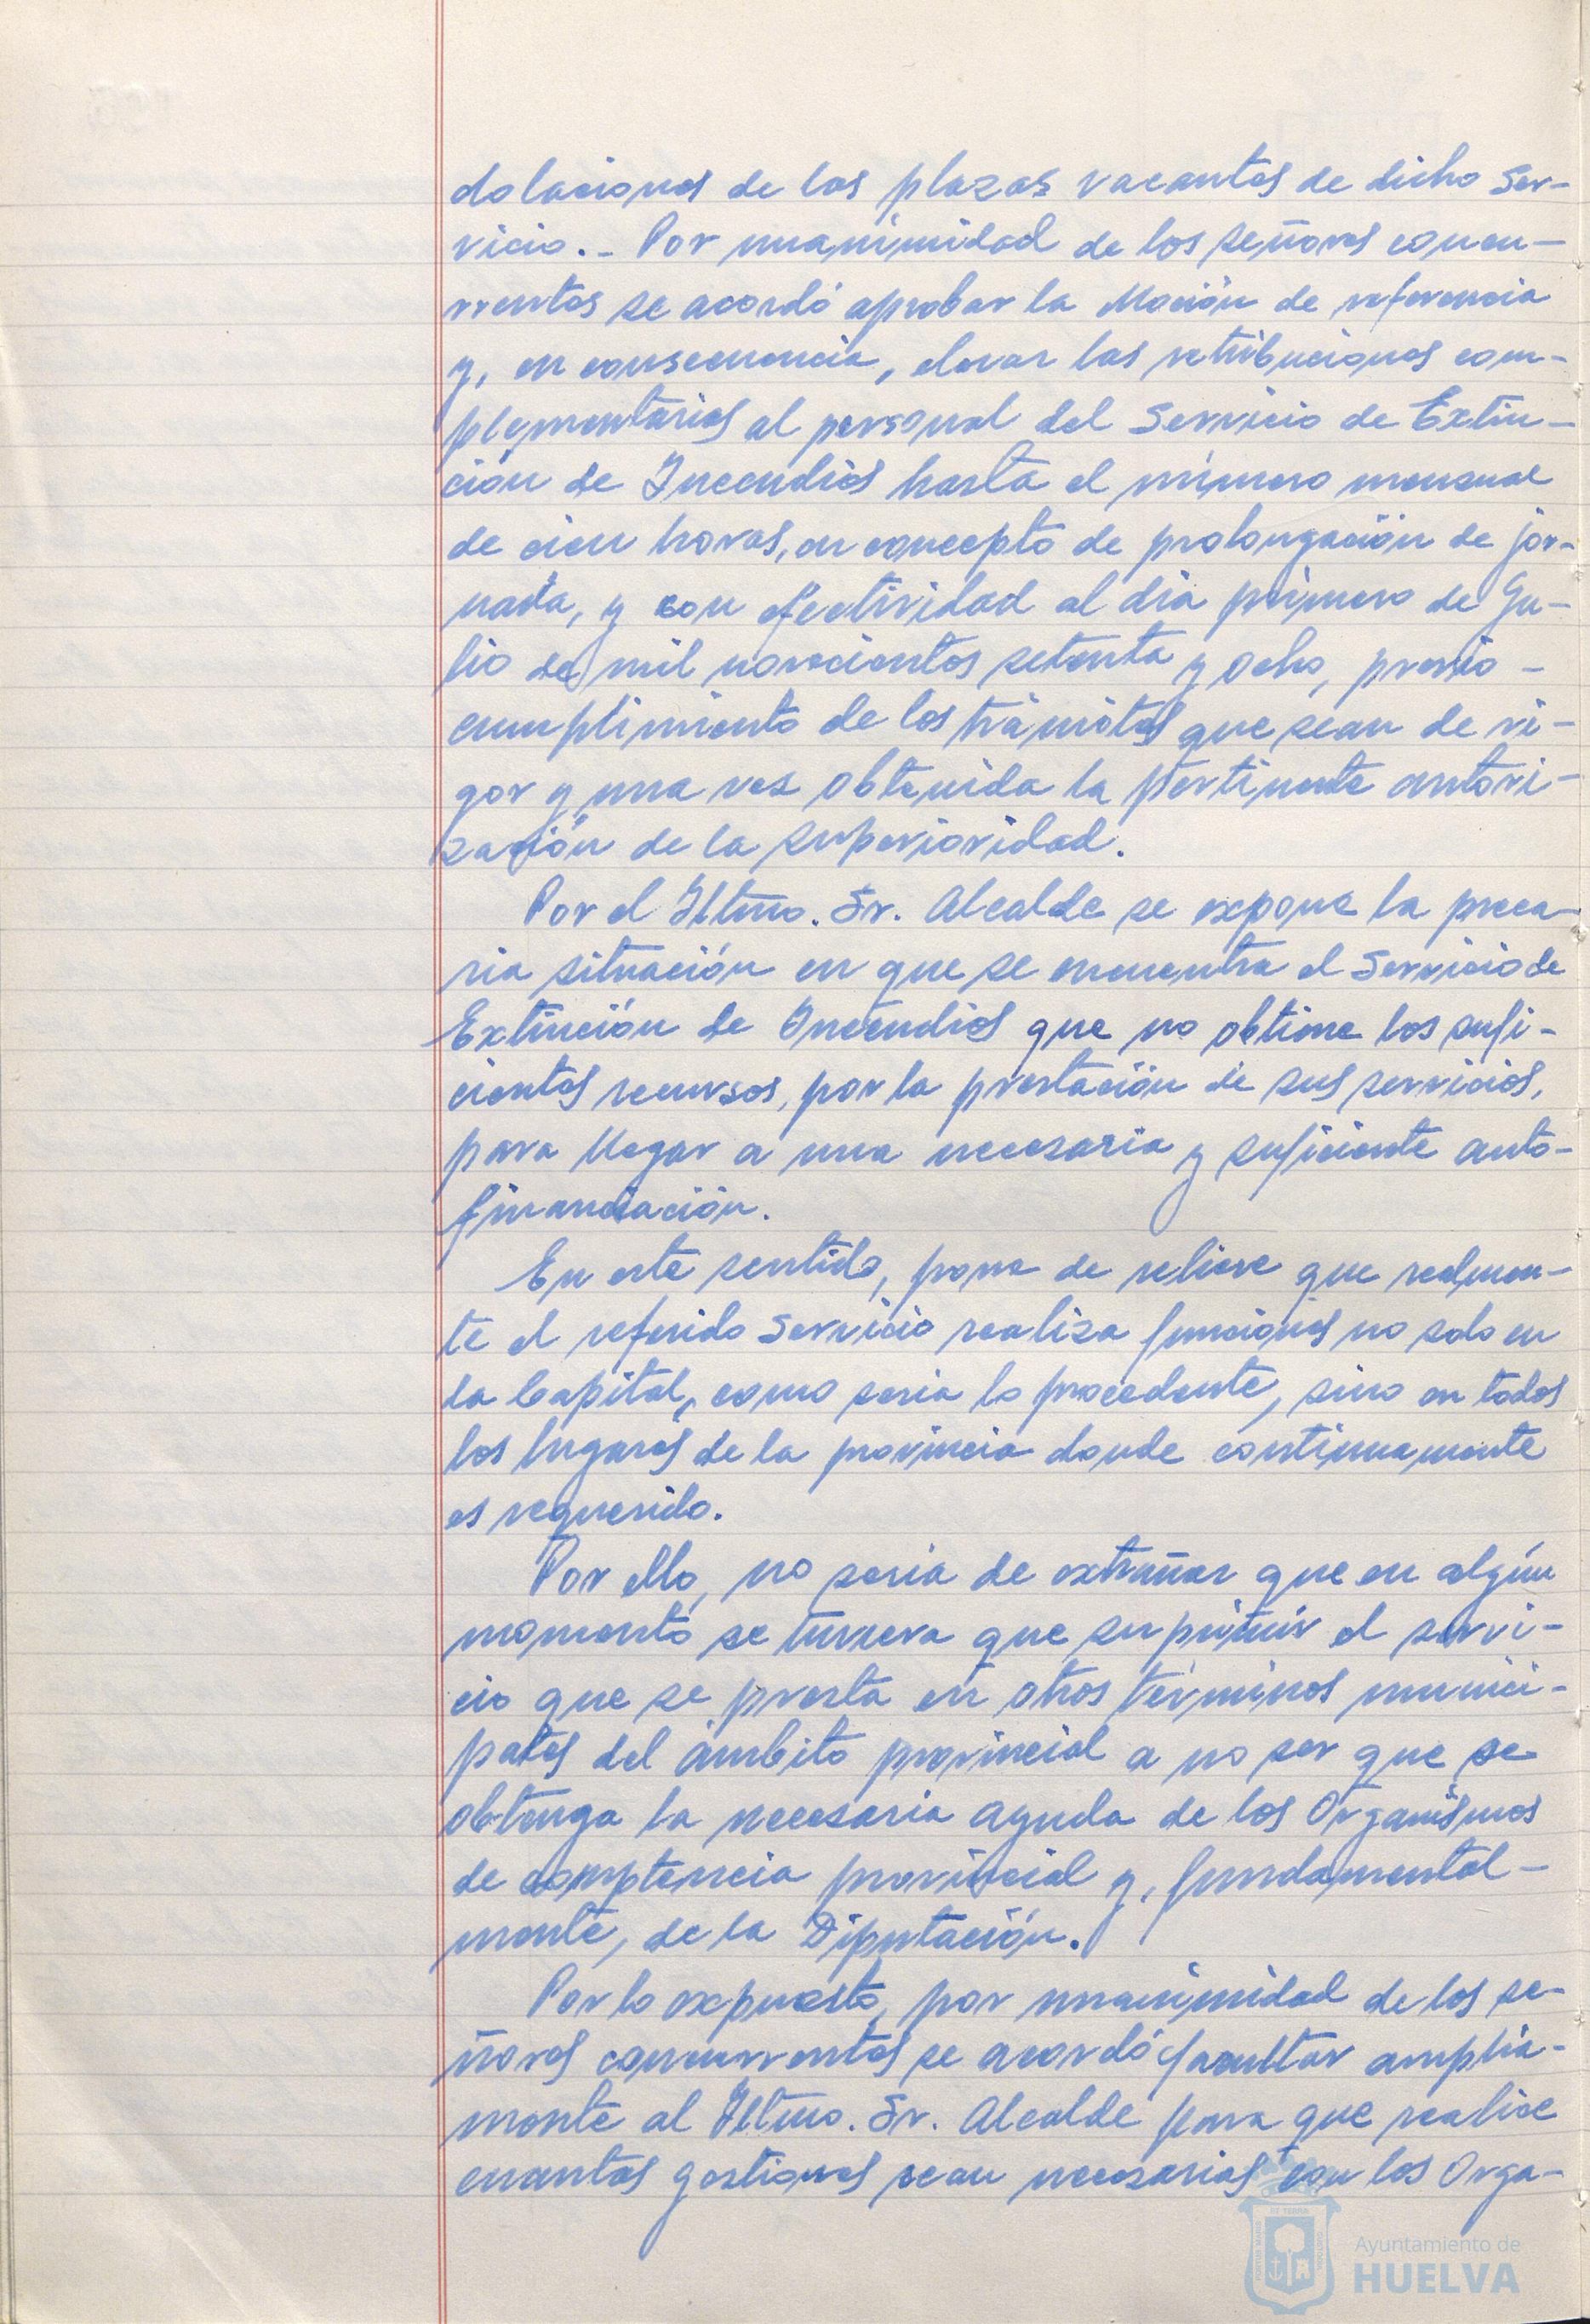 dotaciones de las plazas vacantes de dicho Ser-
vicio.- Por unanimidad de los señores concu-
rrentes se acordó aprobar la Moción de referencia
y, en consecuencia, elevar las retribuciones com-
plementarias al personal del Servicio de Extin-
ción de Incendios hasta el número mensual
de cien horas, en concepto de prolongación de jor-
nada, y con efectividad al día primero de Ju-
lio de mil novecientos setenta y ocho, previo -
cumplimiento de los trámites que sean de vi-
gor y una vez obtenida la pertinente autori-
zación de la superioridad.
Por el Iltmo. Sr. Alcalde se expone la preca-
ria situación en que se encuentra el Servicio de
Extinción de Incendios que no obtiene los sufi-
cientes recursos, por la prestación de sus servicios,
para llegar a una necesaria y suficiente auto-
financiación.
En este sentido, pone de relieve que realmen-
te el referido Servicio realiza funciones no solo en
la Capital, como seria lo procedente, sino en todos
los lugares de la provincia donde continuamente
es requerido.
Por ello, no seria de extrañar que en algún
momento se tuviera que suprimir el servi-
cio que se presta en otros términos munici-
pales del ámbito provincial a no ser que se
obtenga la necesaria ayuda de los Organismos
de comptencia provincial y, fundamental-
mente, de la Diputación.
Por lo expuesto, por unanimidad de los se-
ñores concurrentes se acordó facultar amplia-
mente al Iltmo. Sr. Alcalde para que realice
cuantas gestiones sean necesarias con los Orga-
Ayuntamiento de
HUELVA